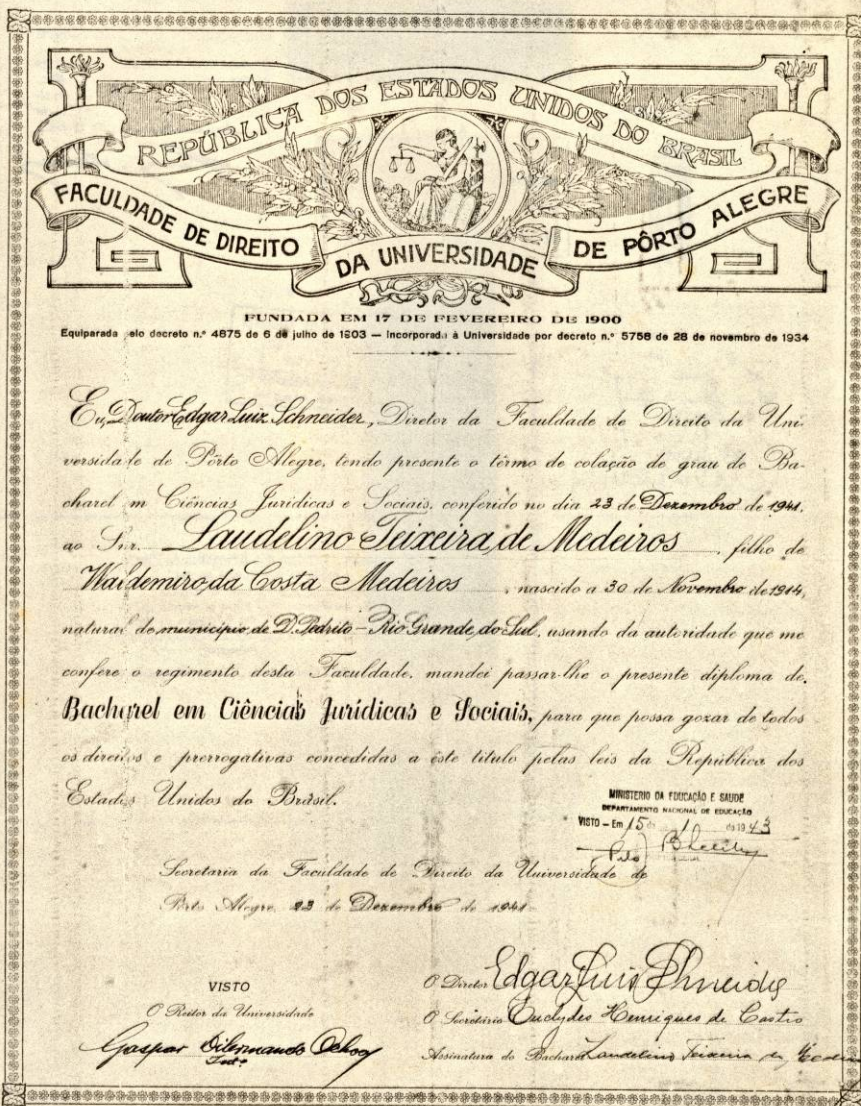 REPÚBLICA DOS ESTADOS UNIDOS DO BRASIL
FACULDADE DE DIREITO DA UNIVERSIDADE DE PÔRTO ALEGRE
FUNDADA EM 17 DE FEVEREIRO DE 1900
Equiparada pelo decreto n.º 4875 de 6 de julho de 1903 — Incorporada à Universidade por decreto n.º 5758 de 28 de novembro de 1934
Eu, Doutor Edgar Luiz Schneider, Diretor da Faculdade de Direito da Uni-
versidade de Pôrto Alegre, tendo presente o têrmo de colação de grau de Ba-
charel em Ciências Jurídicas e Sociais, conferido no dia 23 de Dezembro de 1941,
ao Snr. Laudelino Teixeira de Medeiros, filho de
Waldemiro da Costa Medeiros, nascido a 30 de Novembro de 1914,
natural do município de D. Pedrito - Rio Grande do Sul, usando da autoridade que me
confere o regimento desta Faculdade, mandei passar-lhe o presente diploma de
Bacharel em Ciências Jurídicas e Sociais, para que possa gozar de todos
os direitos e prerrogativas concedidas a êste título pelas leis da República dos
Estados Unidos do Brasil.
MINISTERIO DA EDUCAÇÃO E SAUDE
DEPARTAMENTO NACIONAL DE EDUCAÇÃO
VISTO - Em 15 de 1 de 1943
Secretaria da Faculdade de Direito da Universidade de
Pôrto Alegre, 23 de Dezembro de 1941
VISTO
O Reitor da Universidade
Gaspar Dilermando Ochoa
O Diretor Edgar Luis Schneider
O Secretário Euclydes Henriques de Castro
Assinatura do Bacharel Laudelino Teixeira de